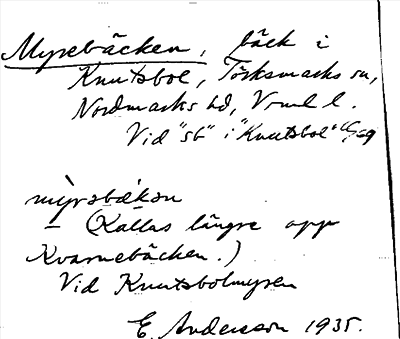 Myrebäcken, bäck i
Knutsbol, Töcksmarks sn,
Nordmarks hd, Vrml l.
Vid "sb" i "Knutsbol"
mỳrobækən
– (Kallas längre opp
Kvarnebäcken.)
Vid Knutsbolmyren
E. Andersson 1935.